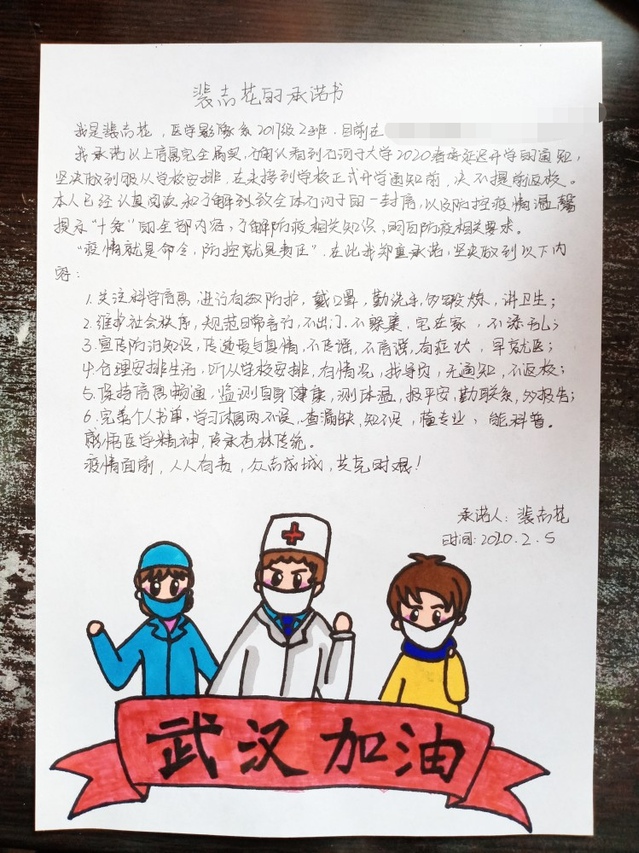 裴志花的承诺书
我是裴志花，医学影像系2017级2班，目前在
我承诺以上信息完全属实，确认看到石河子大学2020春季延迟开学的通知，
坚决做到服从学校安排，在未接到学校正式开学通知前，决不提前返校。
本人已经认真阅读和了解到致全体石河子的一封信，以及防控疫情温馨
提示"十条"的全部内容，了解防疫相关知识，明白防疫相关要求。
"疫情就是命令，防控就是责任"，在此我郑重承诺，坚决做到以下内
容：
1.关注科学信息，进行有效防护，戴口罩，勤洗手，多锻炼，讲卫生；
2.维护社会秩序，规范日常言行，不出门，不聚集，宅在家，不添乱；
3.宣传防治知识，传递爱与真情，不传谣，不信谣，有症状，早就医；
4.合理安排生活，听从学校安排，有情况，找导员，无通知，不返校；
5.保持信息畅通，监测自身健康，测体温，报平安，勤联系，多报告；
6.完善个人书单，学习休息两不误，查漏缺，知不足，懂专业，能科普。
感悟医学精神，传承杏林传统。
疫情面前，人人有责，众志成城，共克时艰！
承诺人：裴志花
时间：2020.2.5
武汉加油